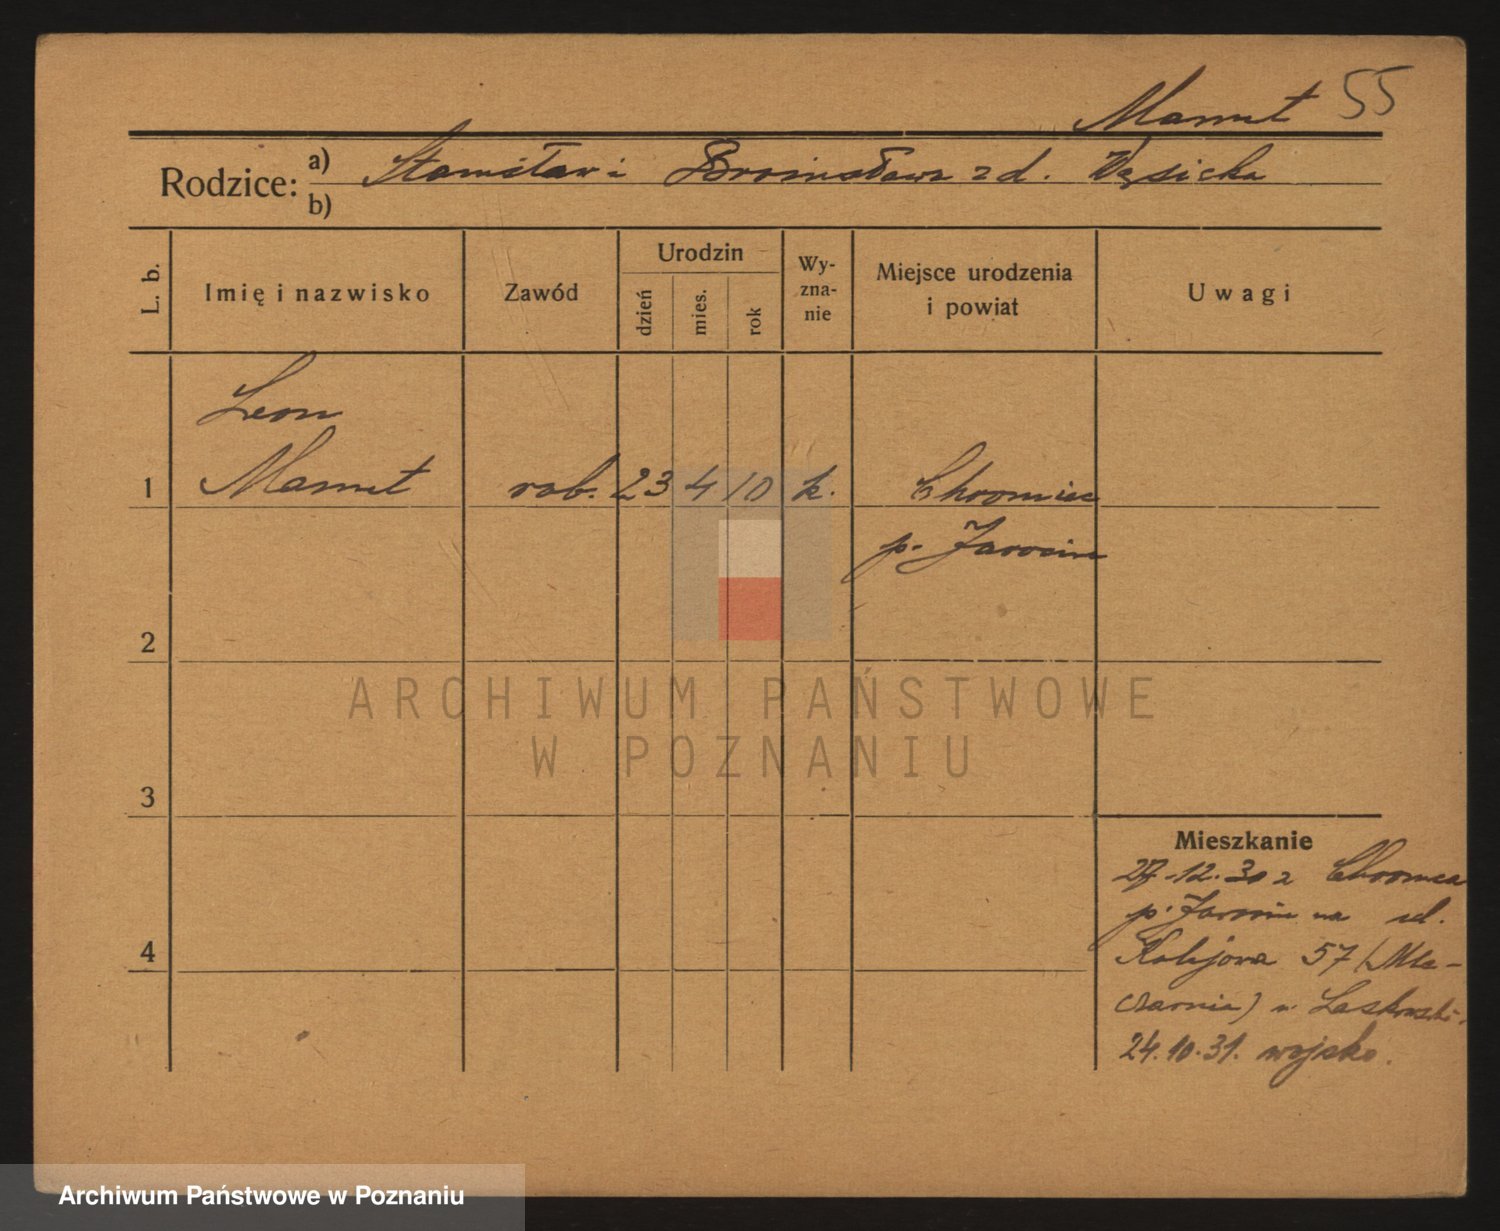 Mamet 55
Rodzice: a) Stanisław i Bronisława z d. Wąsicka
b)
L. b. Imię i nazwisko Zawód Urodzin dzień mies. rok Wy-zna-nie Miejsce urodzenia i powiat Uwagi
Leon
1 Mamet rob. 23 4 10 k. Chromiec
p. Jarocin
2
ARCHIWUM PAŃSTWOWE
W POZNANIU
3
Mieszkanie
27.12.30 z Chromca
p. Jarocin na ul.
4 Kolejowa 57 (Mle-
czarnia) u Laskowski.
24.10.31. wojsko.
Archiwum Państwowe w Poznaniu